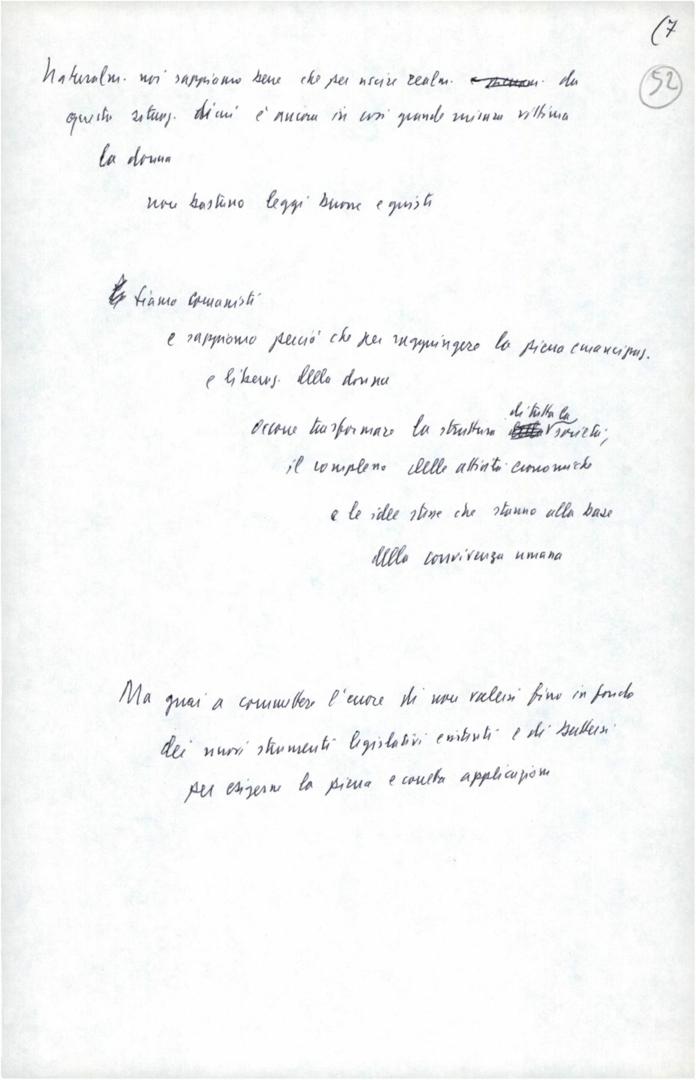 (7
52
Naturalm. noi sappiamo bene che per uscire realm. da
questa situaz. di cui è ancora in così grande misura vittima
la donna
non bastano leggi buone e giuste
Siamo comunisti
e sappiamo perciò che per raggiungere la piena emancipaz.
e liberaz. della donna
di tutta la
occorre trasformare la struttura società,
il complesso delle attività economiche
e le idee stesse che stanno alla base
della convivenza umana
Ma guai a commettere l'errore di non valersi fino in fondo
dei nuovi strumenti legislativi esistenti e di battersi
per esigerne la piena e corretta applicazione